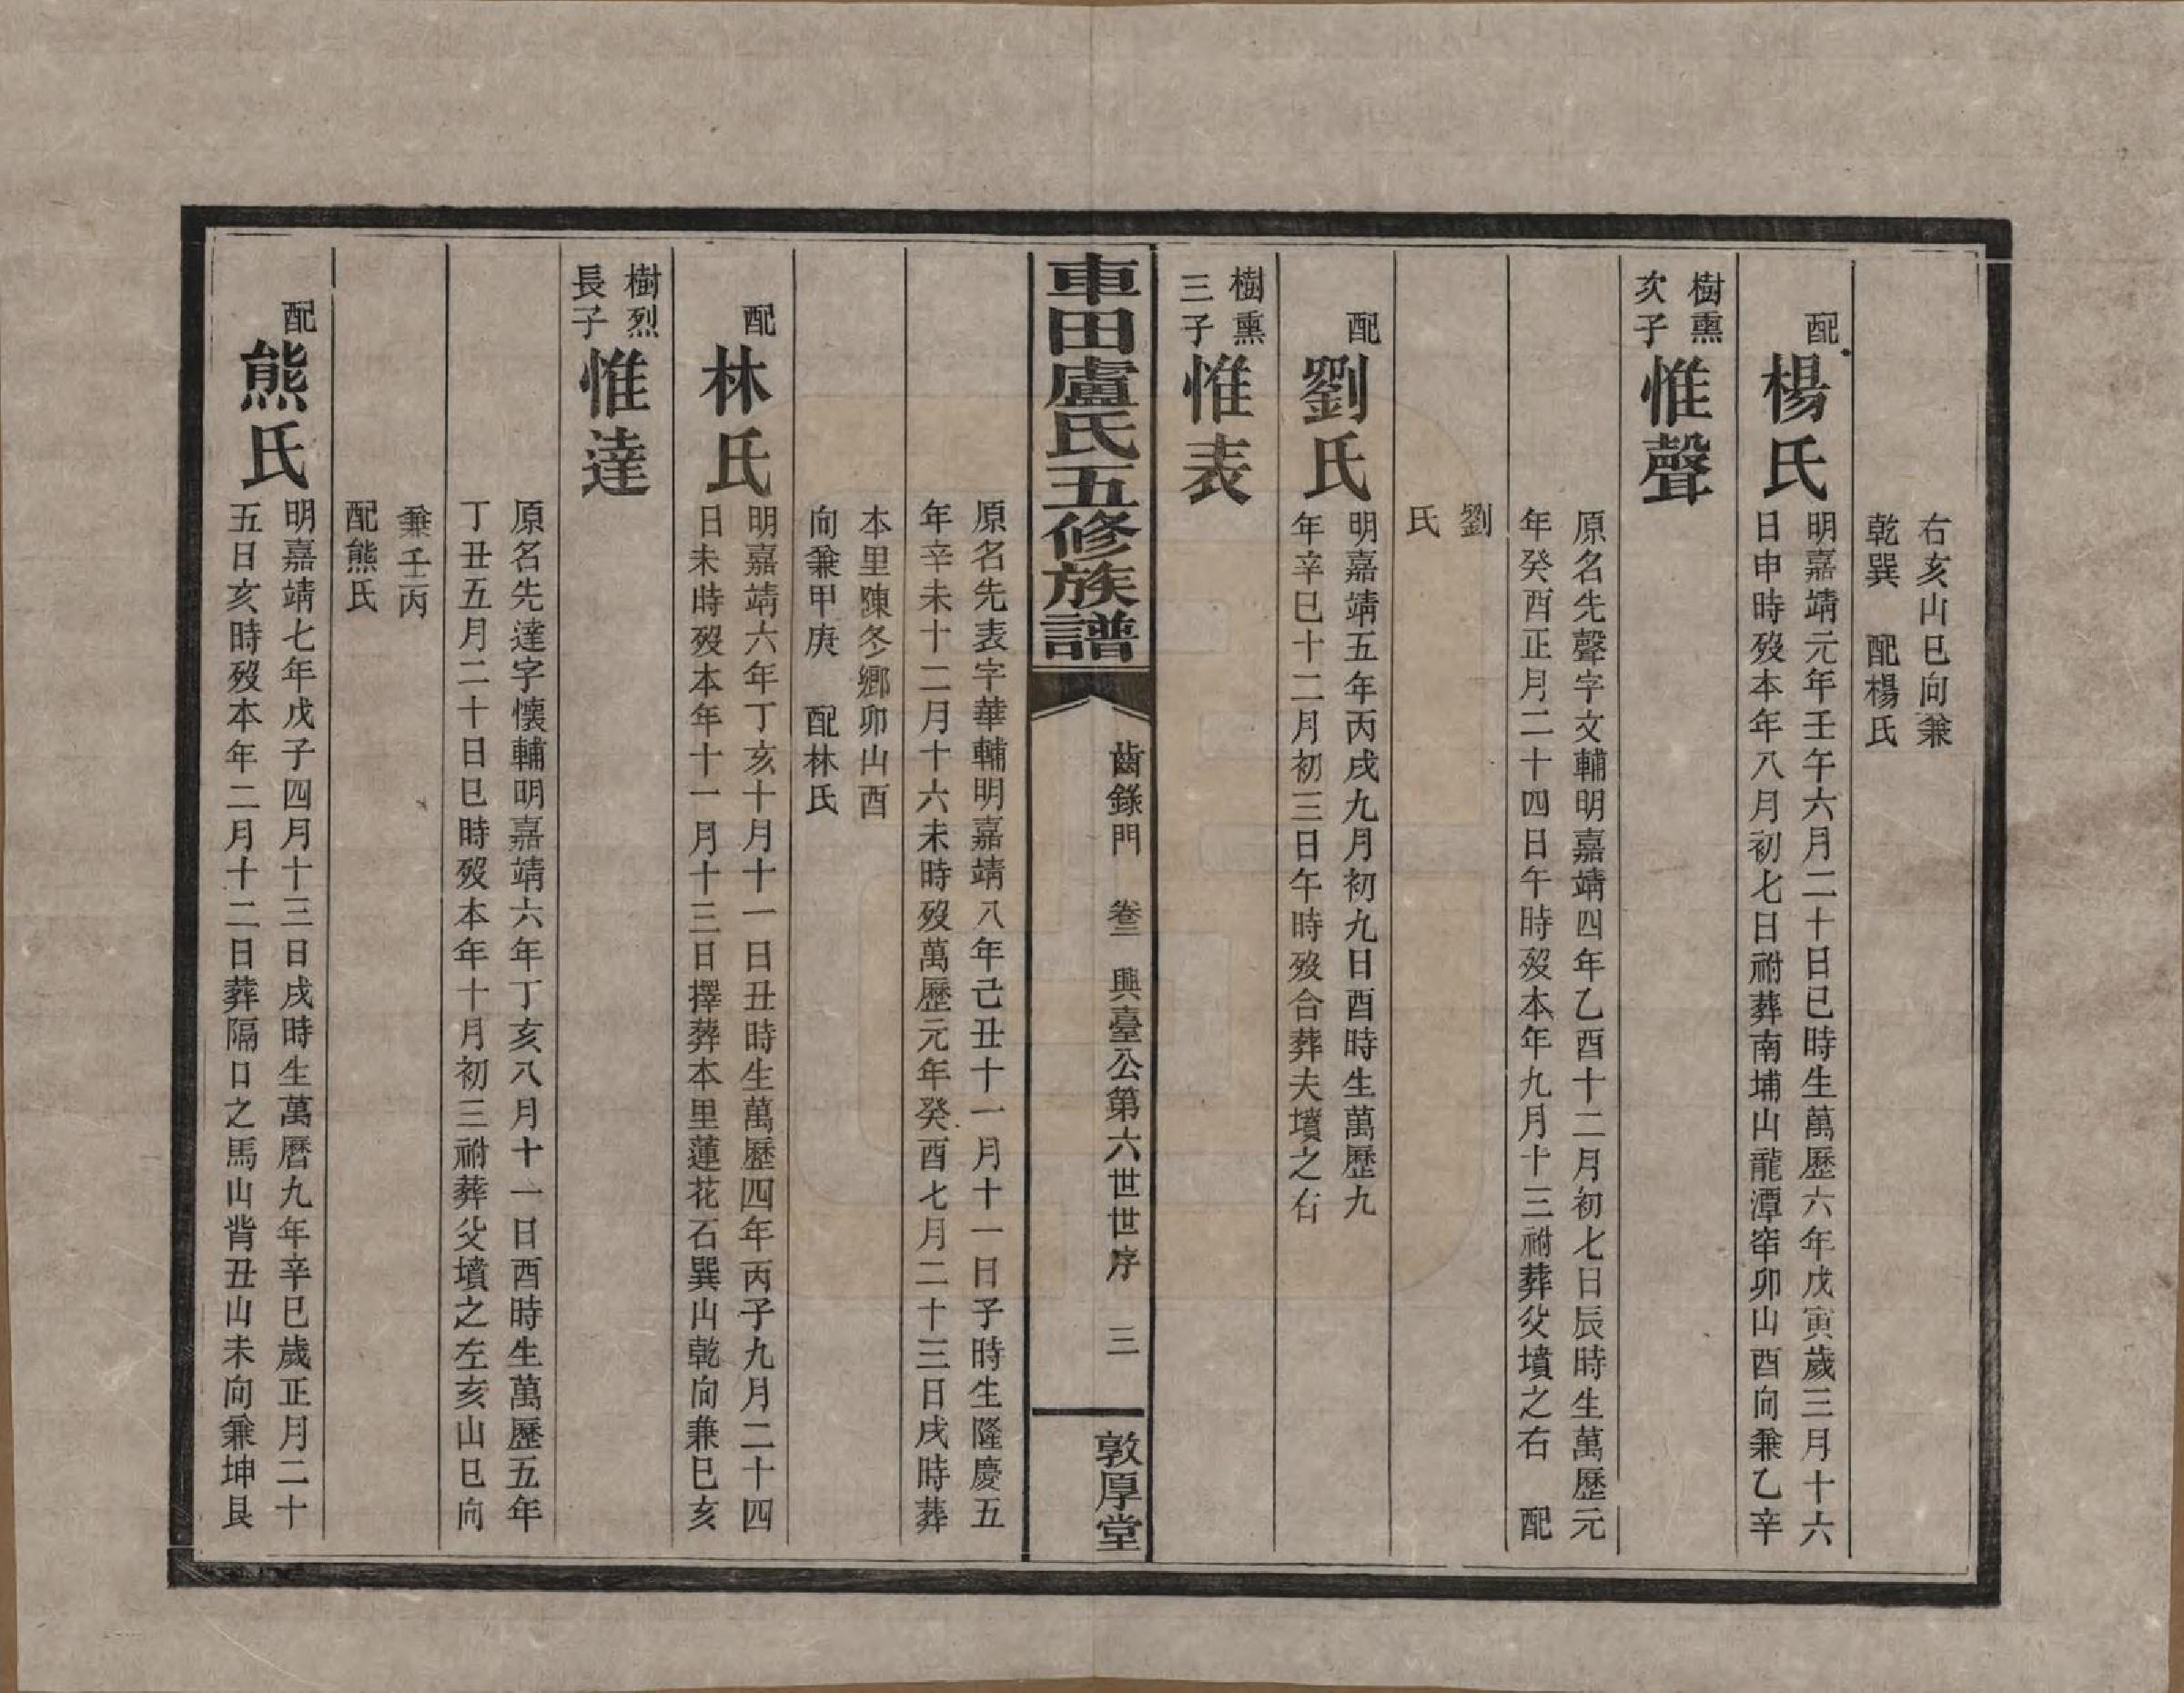 右亥山巳向兼
乾巽　配楊氏
配
楊氏
明嘉靖元年壬午六月二十日巳時生萬歷六年戊寅歲三月十六
日申時歿本年八月初七日祔葬南埔山龍潭窂卯山酉向兼乙辛
樹熏
次子
惟聲
原名先聲字文輔明嘉靖四年乙酉十二月初七日辰時生萬歷元
年癸酉正月二十四日午時歿本年九月十三祔葬父墳之右　配
劉
氏
配
劉氏
明嘉靖五年丙戌九月初九日酉時生萬歷九
年辛巳十二月初三日午時歿合葬夫墳之右
樹熏
三子
惟表
車田盧氏五修族譜
齒錄門　卷三　興臺公第六世世序　三
敦厚堂
原名先表字華輔明嘉靖八年己丑十一月十一日子時生隆慶五
年辛未十二月十六未時歿萬歷元年癸酉七月二十三日戌時葬
本里陳冬鄉卯山酉
向兼甲庚　配林氏
配
林氏
明嘉靖六年丁亥十月十一日丑時生萬歷四年丙子九月二十四
日未時歿本年十一月十三日擇葬本里蓮花石巽山乾向兼巳亥
樹烈
長子
惟達
原名先達字懷輔明嘉靖六年丁亥八月十一日酉時生萬歷五年
丁丑五月二十日巳時歿本年十月初三祔葬父墳之左亥山巳向
兼壬丙
配熊氏
配
熊氏
明嘉靖七年戊子四月十三日戌時生萬曆九年辛巳歲正月二十
五日亥時歿本年二月十二日葬隔口之馬山背丑山未向兼坤艮